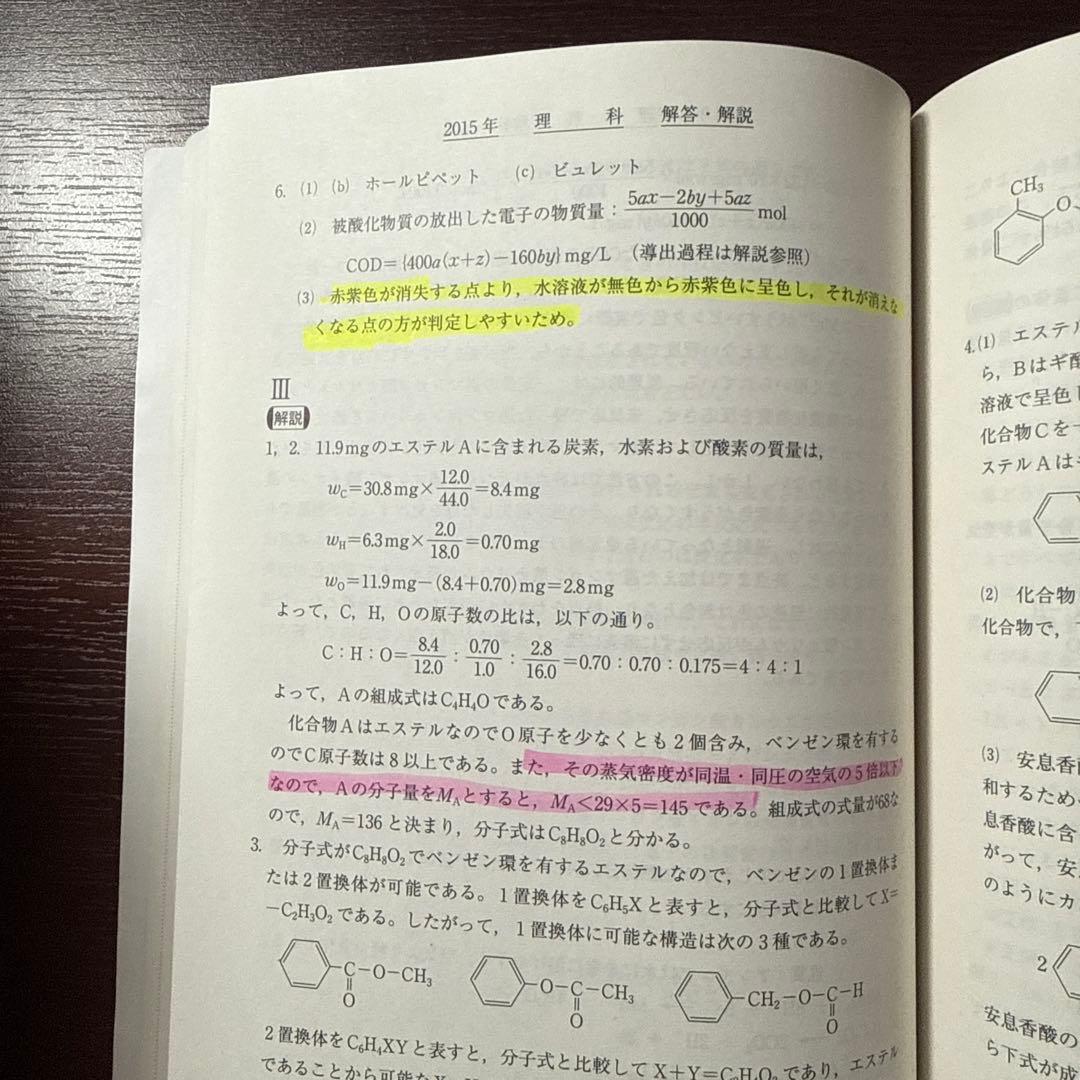 2015年 理 科 解答・解説
6. (1) (b) ホールピペット (c) ビュレット
(2) 被酸化物質の放出した電子の物質量：5ax−2by+5az/1000 mol
COD={400a(x+z)−160by}mg/L （導出過程は解説参照）
(3) 赤紫色が消失する点より，水溶液が無色から赤紫色に呈色し，それが消えな
くなる点の方が判定しやすいため。
Ⅲ
解説
1，2. 11.9mgのエステルAに含まれる炭素，水素および酸素の質量は，
wC=30.8mg×12.0/44.0=8.4mg
wH=6.3mg×2.0/18.0=0.70mg
wO=11.9mg−(8.4+0.70)mg=2.8mg
よって，C，H，Oの原子数の比は，以下の通り。
C：H：O=8.4/12.0：0.70/1.0：2.8/16.0=0.70：0.70：0.175=4：4：1
よって，Aの組成式はC4H4Oである。
化合物AはエステルなのでO原子を少なくとも2個含み，ベンゼン環を有する
のでC原子数は8以上である。また，その蒸気密度が同温・同圧の空気の5倍以下
なので，Aの分子量をMAとすると，MA<29×5=145である。組成式の式量が68な
ので，MA=136と決まり，分子式はC8H8O2と分かる。
3. 分子式がC8H8O2でベンゼン環を有するエステルなので，ベンゼンの1置換体ま
たは2置換体が可能である。1置換体をC6H5Xと表すと，分子式と比較してX=
−C2H3O2である。したがって，1置換体に可能な構造は次の3種である。
C−O−CH3
O
O−C−CH3
O
CH2−O−C−H
O
2置換体をC6H4XYと表すと，分子式と比較してX+Y=C2H4O2であり，エステル
であることから可能な
CH3
O
4.(1) エステル
ら，Bはギ酸
溶液で呈色
化合物Cを
ステルAは
(2) 化合物
化合物で，
(3) 安息香酸
和するため
息香酸に含
がって，安
のようにカ
2
安息香酸の
ら下式が成